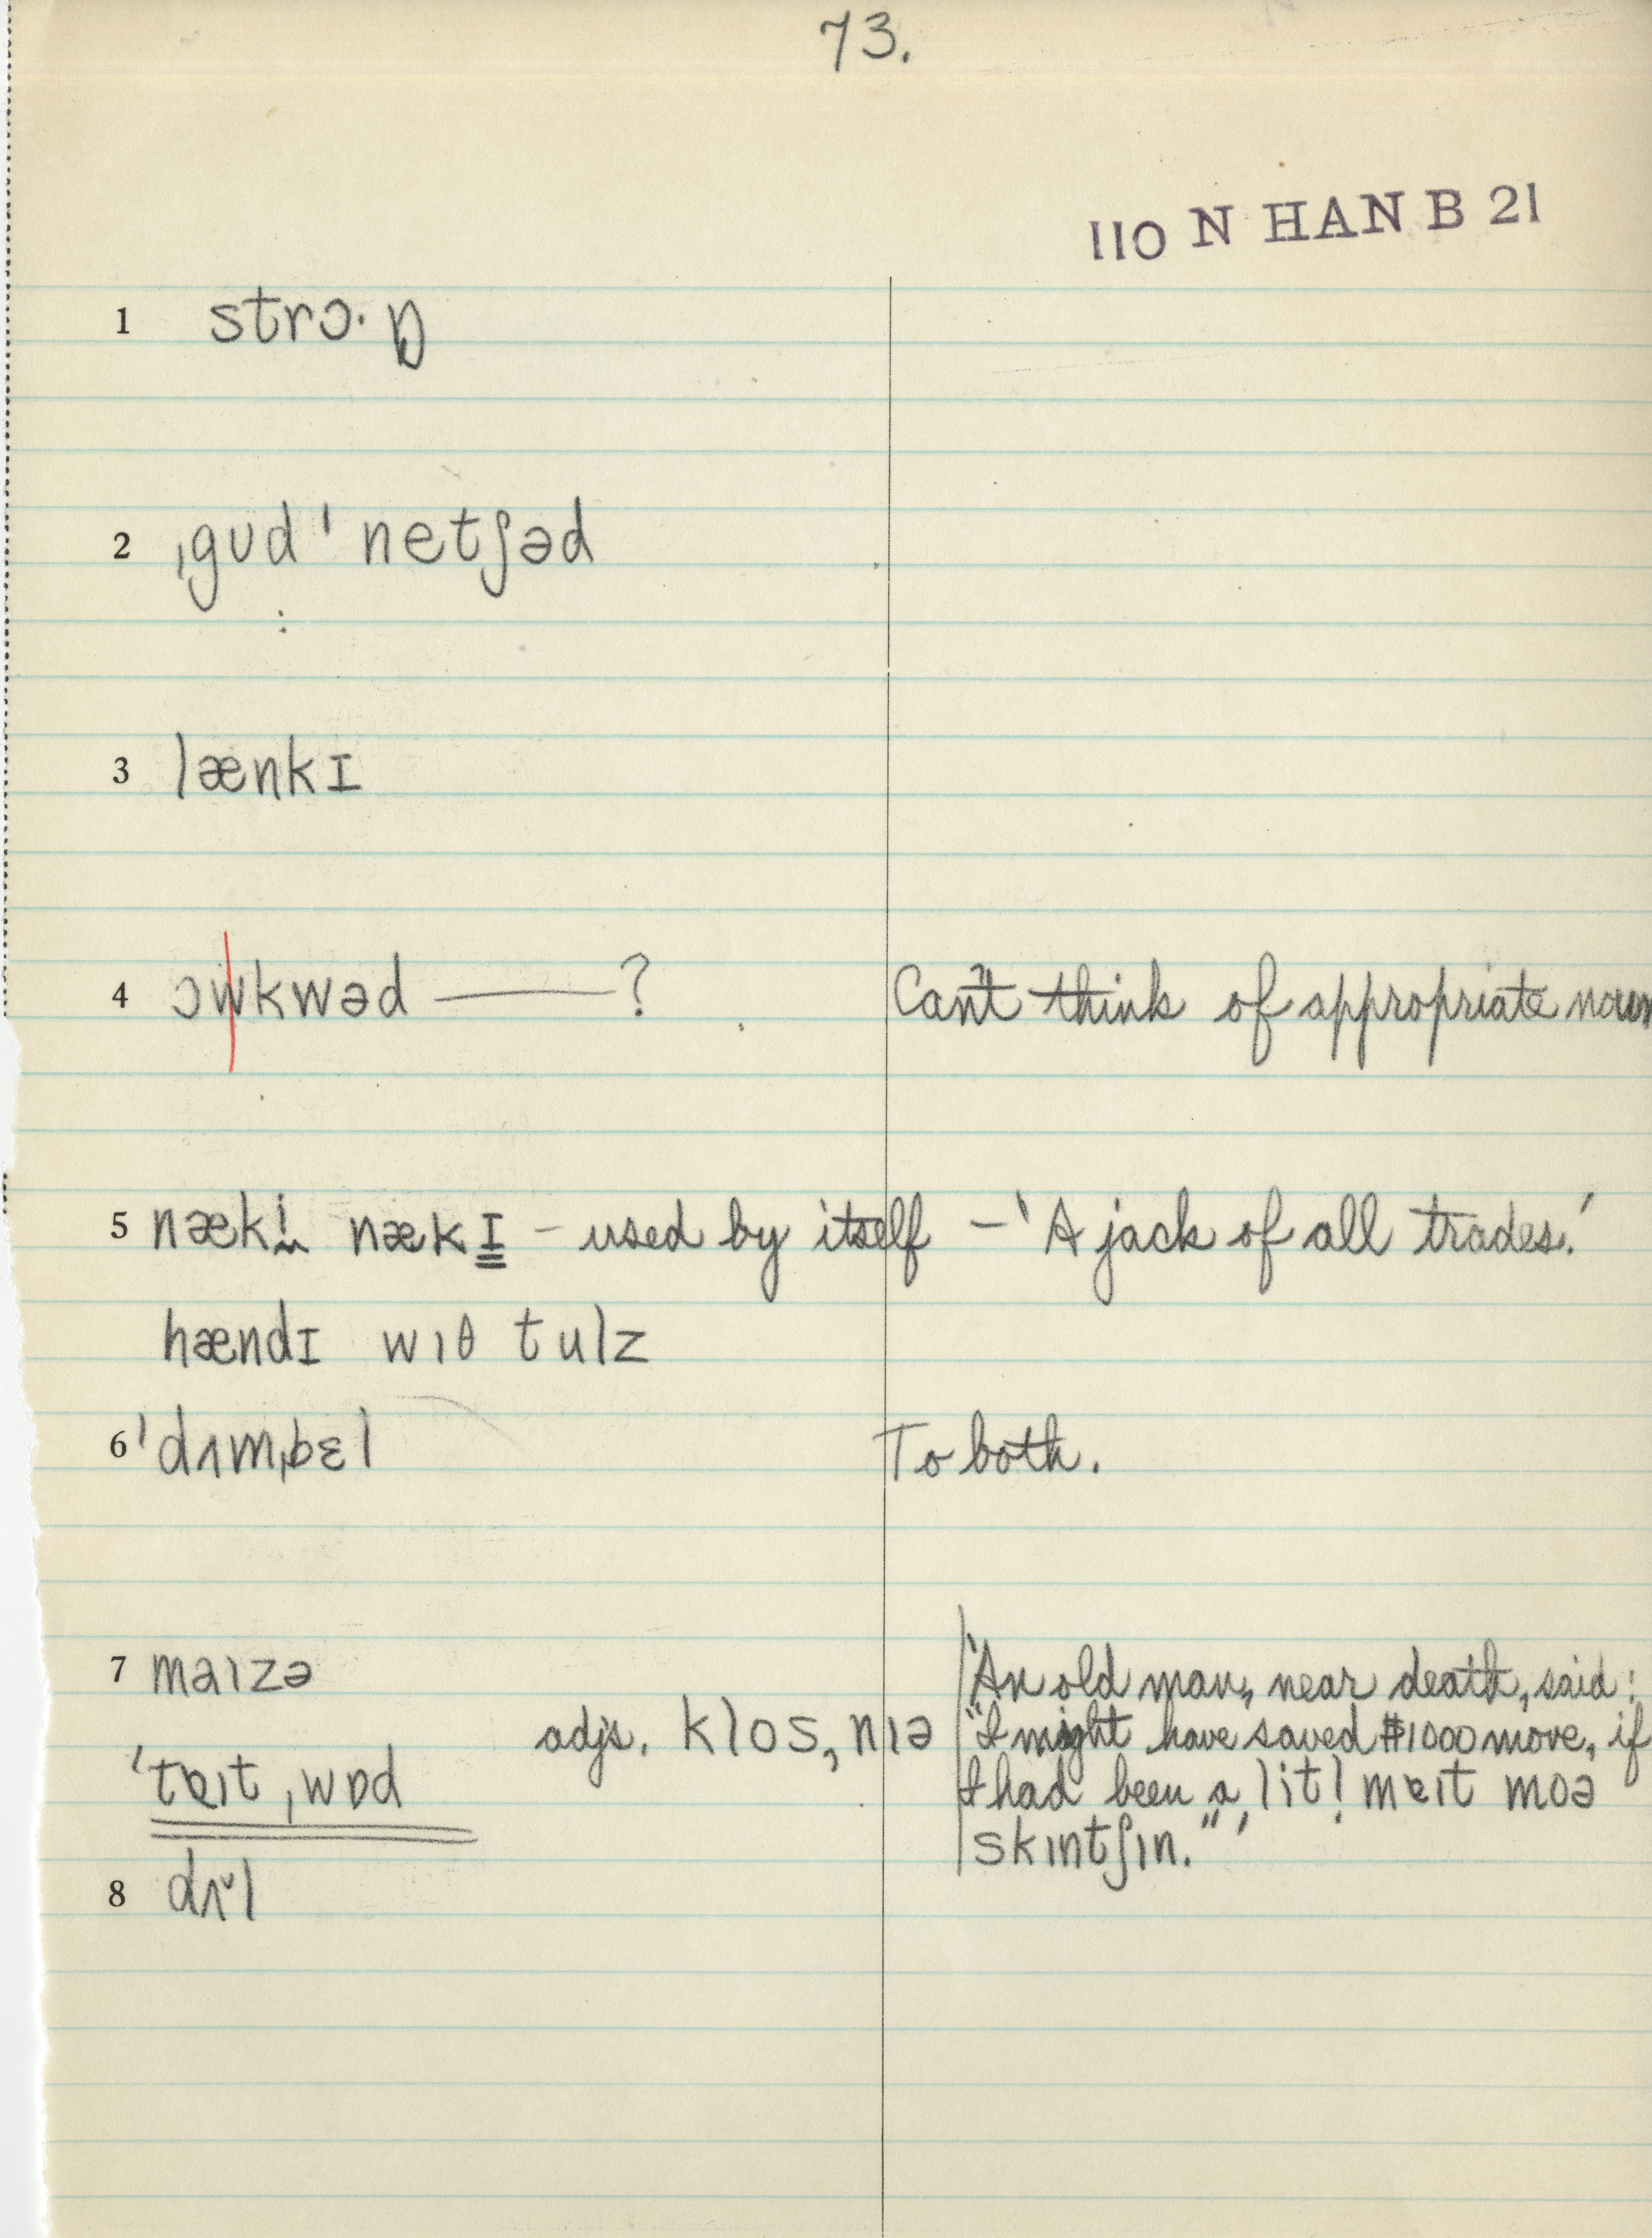 73.
110 N HAN B 21
1 strɔ·ŋ
2 ˌgʊd ˈnetʃəd
3 lænkɪ
4 ɔwkwəd ——? Can't think of appropriate noun
5 nækɪ nækɪ – used by itself – 'A jack of all trades.'
hændɪ wɪθ tulz
6 ˈdʌmˌbɛl To both.
7 maɪzə
adjs. klos, nɪə
ˈtɐɪtˌwɒd
'An old man, near death, said:
"I might have saved $1000 more, if
I had been a litl mɐɪt moə
skɪntʃɪn."'
8 dʌl